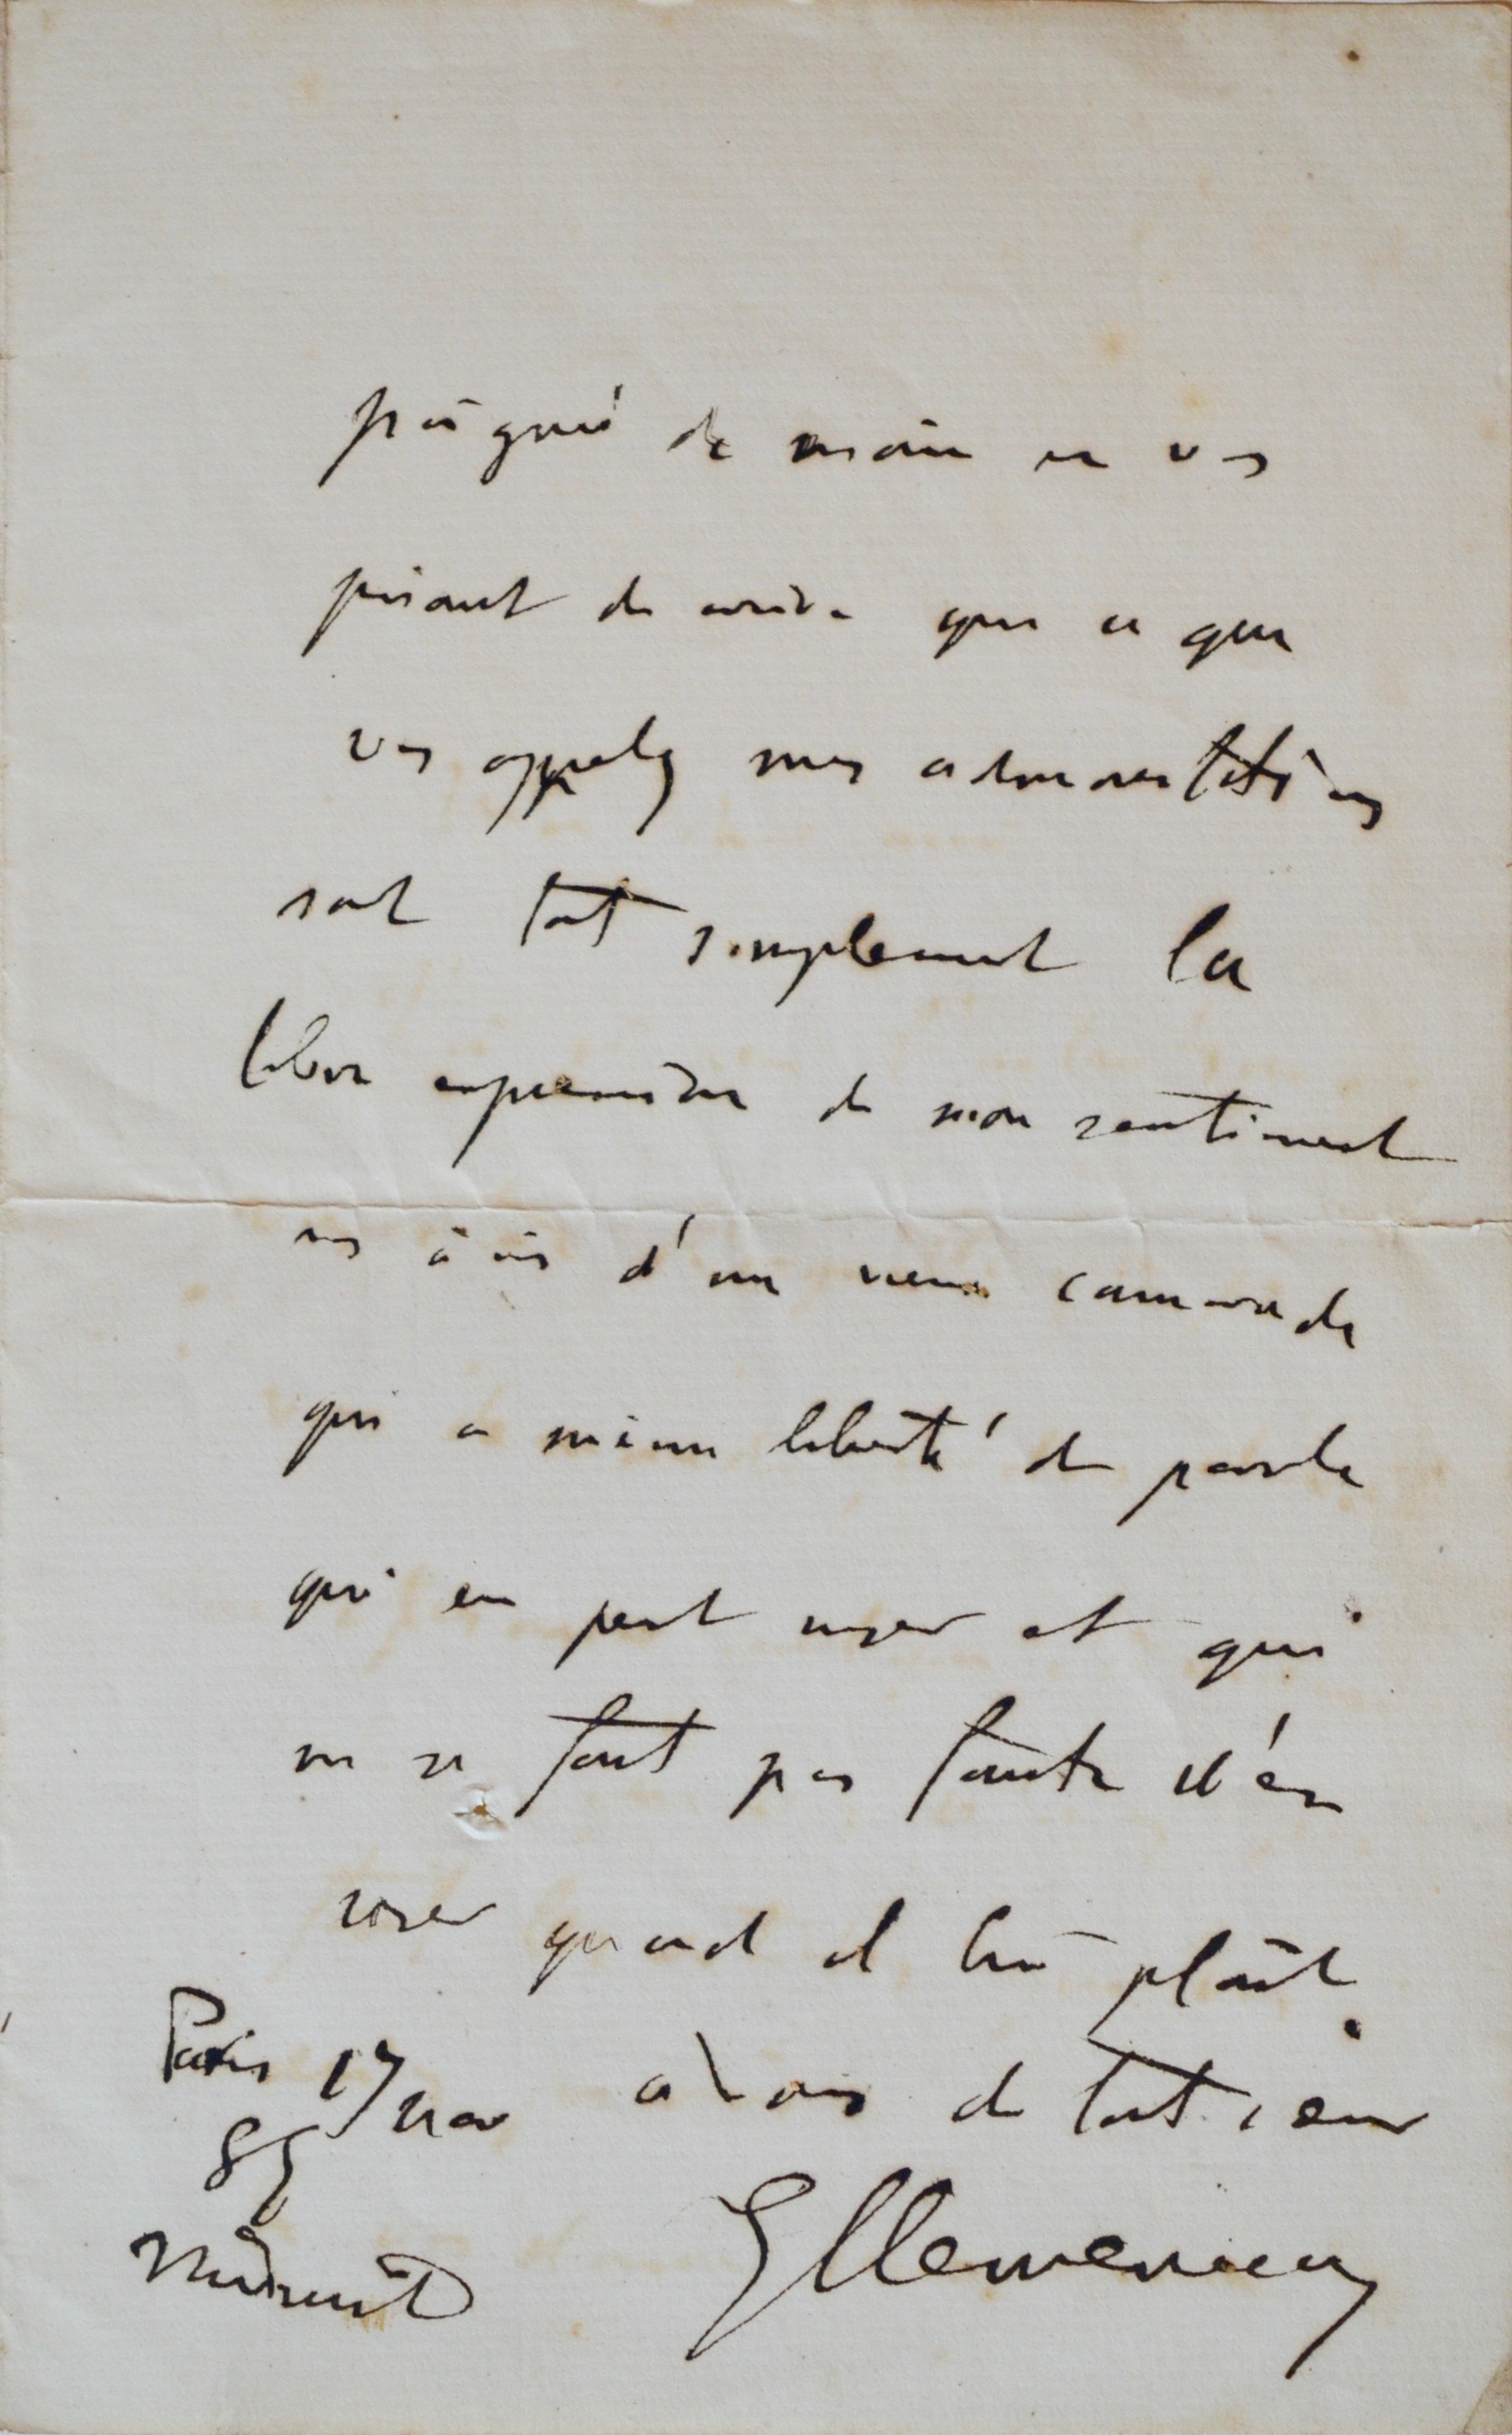 poignée de main en vous
priant de croire que ce que
vous appelez mes admonestations
sont tout simplement la
libre expression de mon sentiment
vis à vis d'un vieux camarade
qui a même liberté de parole
qui en peut user et qui
ne se fait pas faute d'en
user quand il lui plaît.
à vous de tout cœur
Paris 17 nov
85
Minuit
GClemenceau